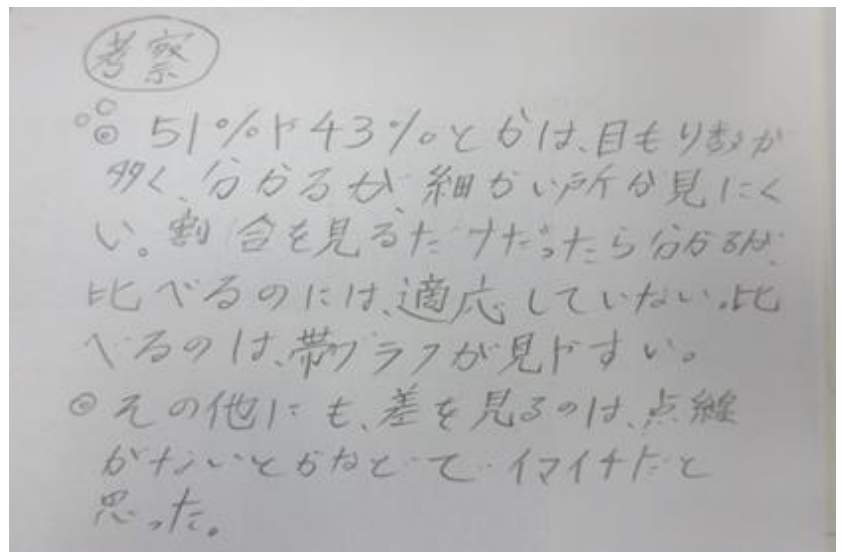 考察
◎ 51%や43%とかは、目もり数が
多く、分かるが、細かい所が見にく
い。割合を見るだけだったら分かるが、
比べるのには、適応していない。比
べるのは、帯グラフが見やすい。
◎ その他にも、差を見るのは、点線
がないとかなどで、イマイチだと
思った。